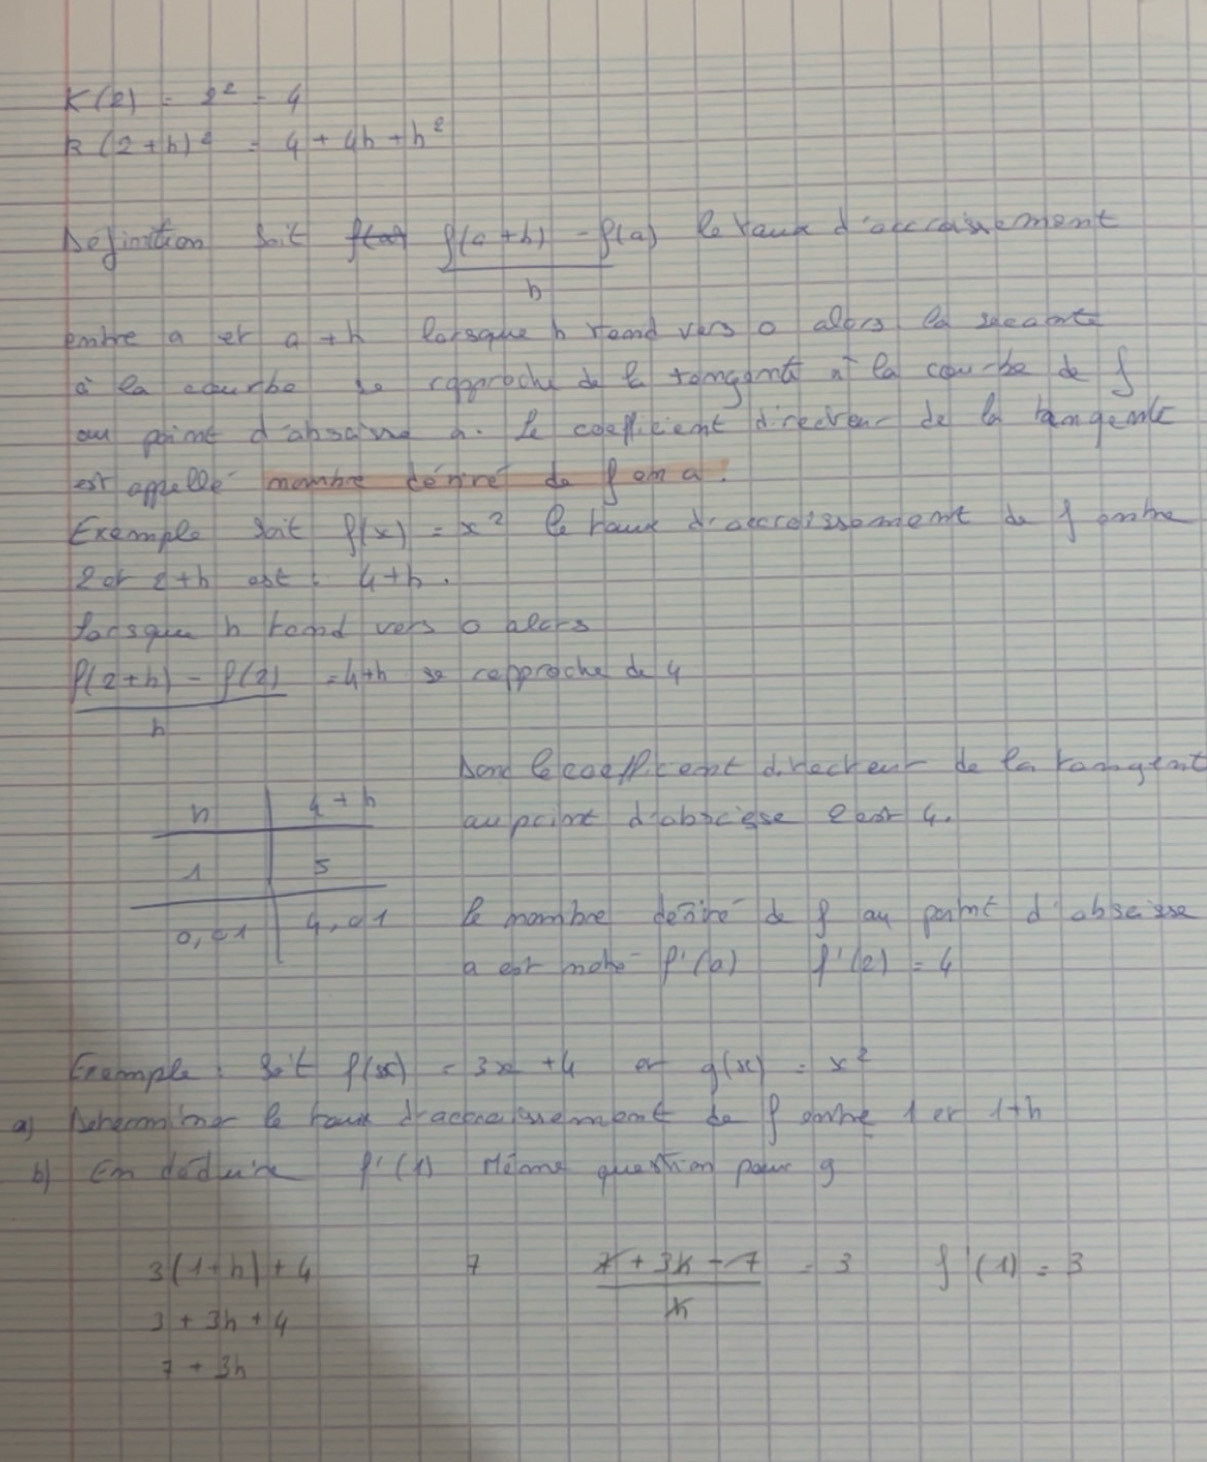 K(2) = 2² = 4
k(2+h)² = 4 + 4h + h²
Définition Soit f(a+h) - f(a) le taux d'accroissement
h
entre a et a+h lorsque h tend vers 0 alors la secante
à la courbe se rapproche de la tangente à la courbe de f
au point d'abscisse a. le coefficient directeur de la tangente
est appellé nombre dérivé de f en a.
Exemple Soit f(x) = x² le taux d'accroissement de f entre
2 et 2+h est : 4+h.
lorsque h tend vers 0 alors
f(2+h) - f(2) = 4+h se rapproche de 4
h
Donc le coefficient directeur de la tangent
au point d'abscisse 2 est 4.
h | 4+h
1 | 5
0,01 | 4,01
le nombre dérivé de f au point d'abscisse
a est noté f'(a) f'(2) = 4
Exemple : Soit f(x) = 3x + 4 et g(x) = x²
a) Determiner le taux d'accroissement de f entre 1 et 1+h
b) En déduire f'(1) Même question pour g
3(1+h)+4 7 7 + 3h - 7 = 3 f'(1) = 3
h
3 + 3h + 4
7 + 3h